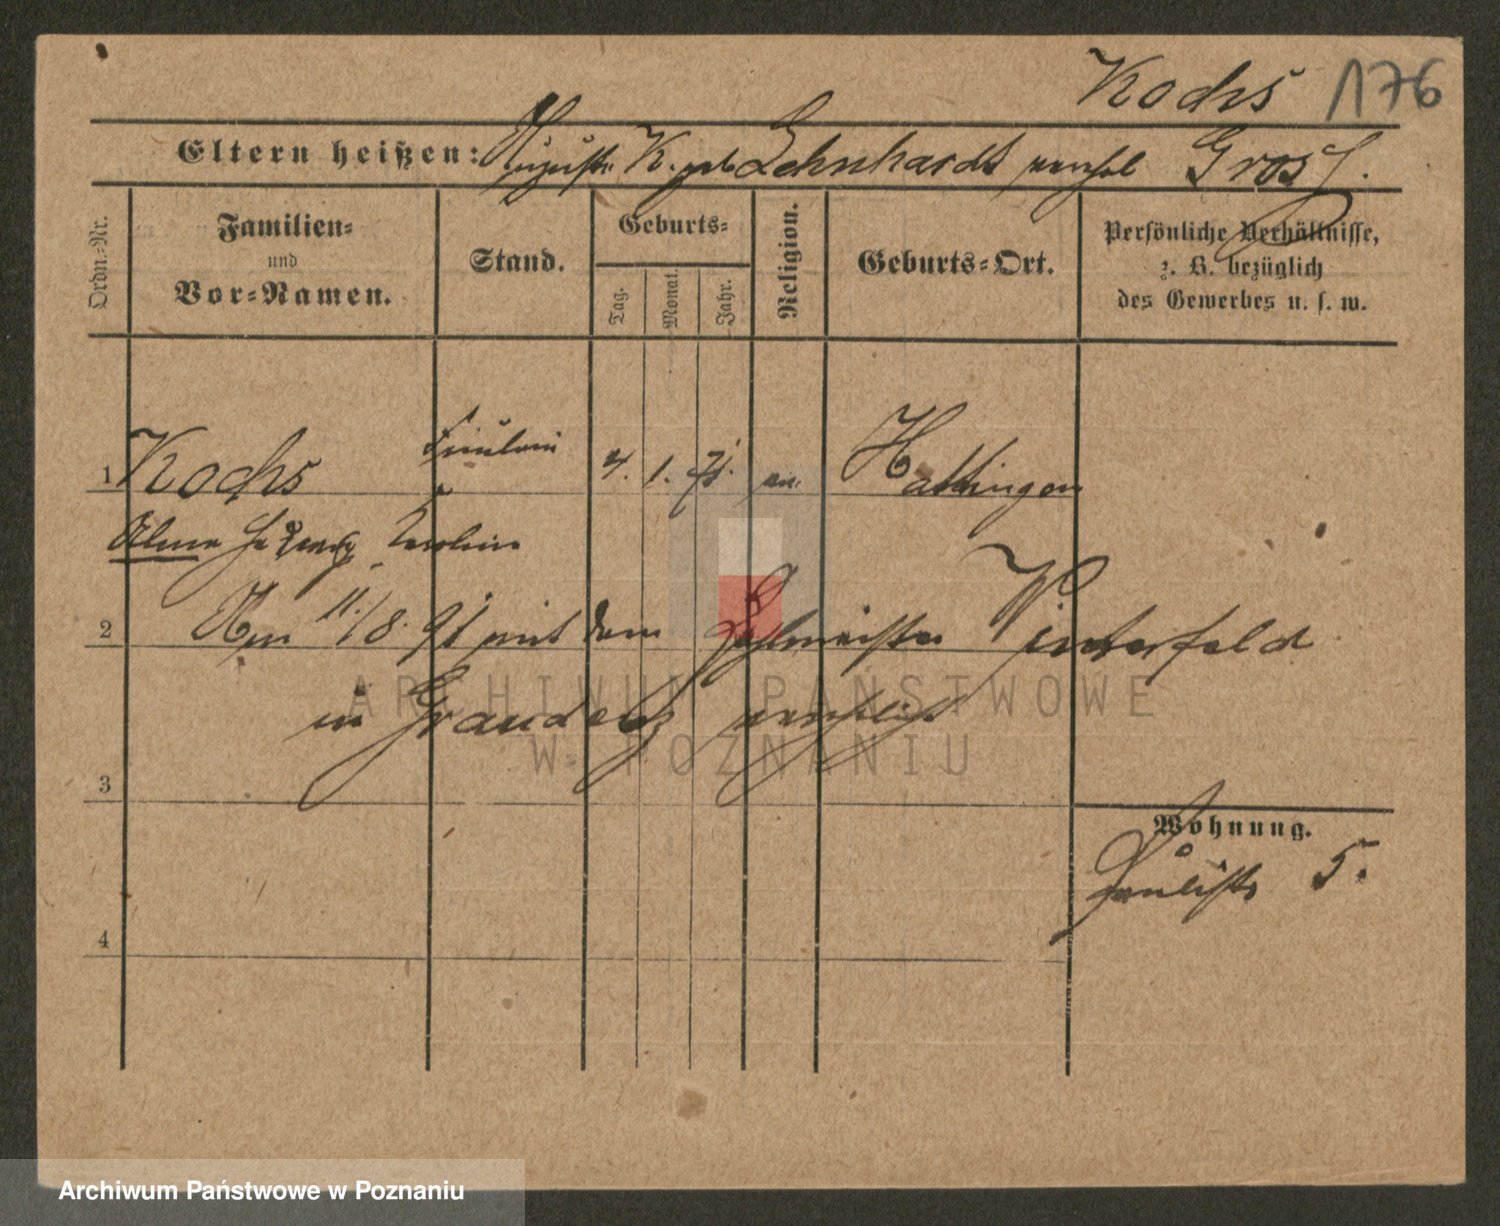 Kochs 176
Eltern heißen: Auguste K. geb Lehnhardt verehel Gross.
Ordn.-Nr.
Familien-
und
Vor-Namen.
Stand.
Geburts-
Tag.
Monat.
Jahr.
Religion.
Geburts-Ort.
Persönliche Verhältnisse,
z. B. bezüglich
des Gewerbes u. s. w.
1 Kochs Fräulein 4. 1. 71. ev. Hattingen
Alma
2 Am 11./8. 91 mit dem Zahlmeister Winterfeld
in Graudenz verehelicht
3
Wohnung.
Paulistr 5.
4
ARCHIWUM PAŃSTWOWE
W POZNANIU
Archiwum Państwowe w Poznaniu